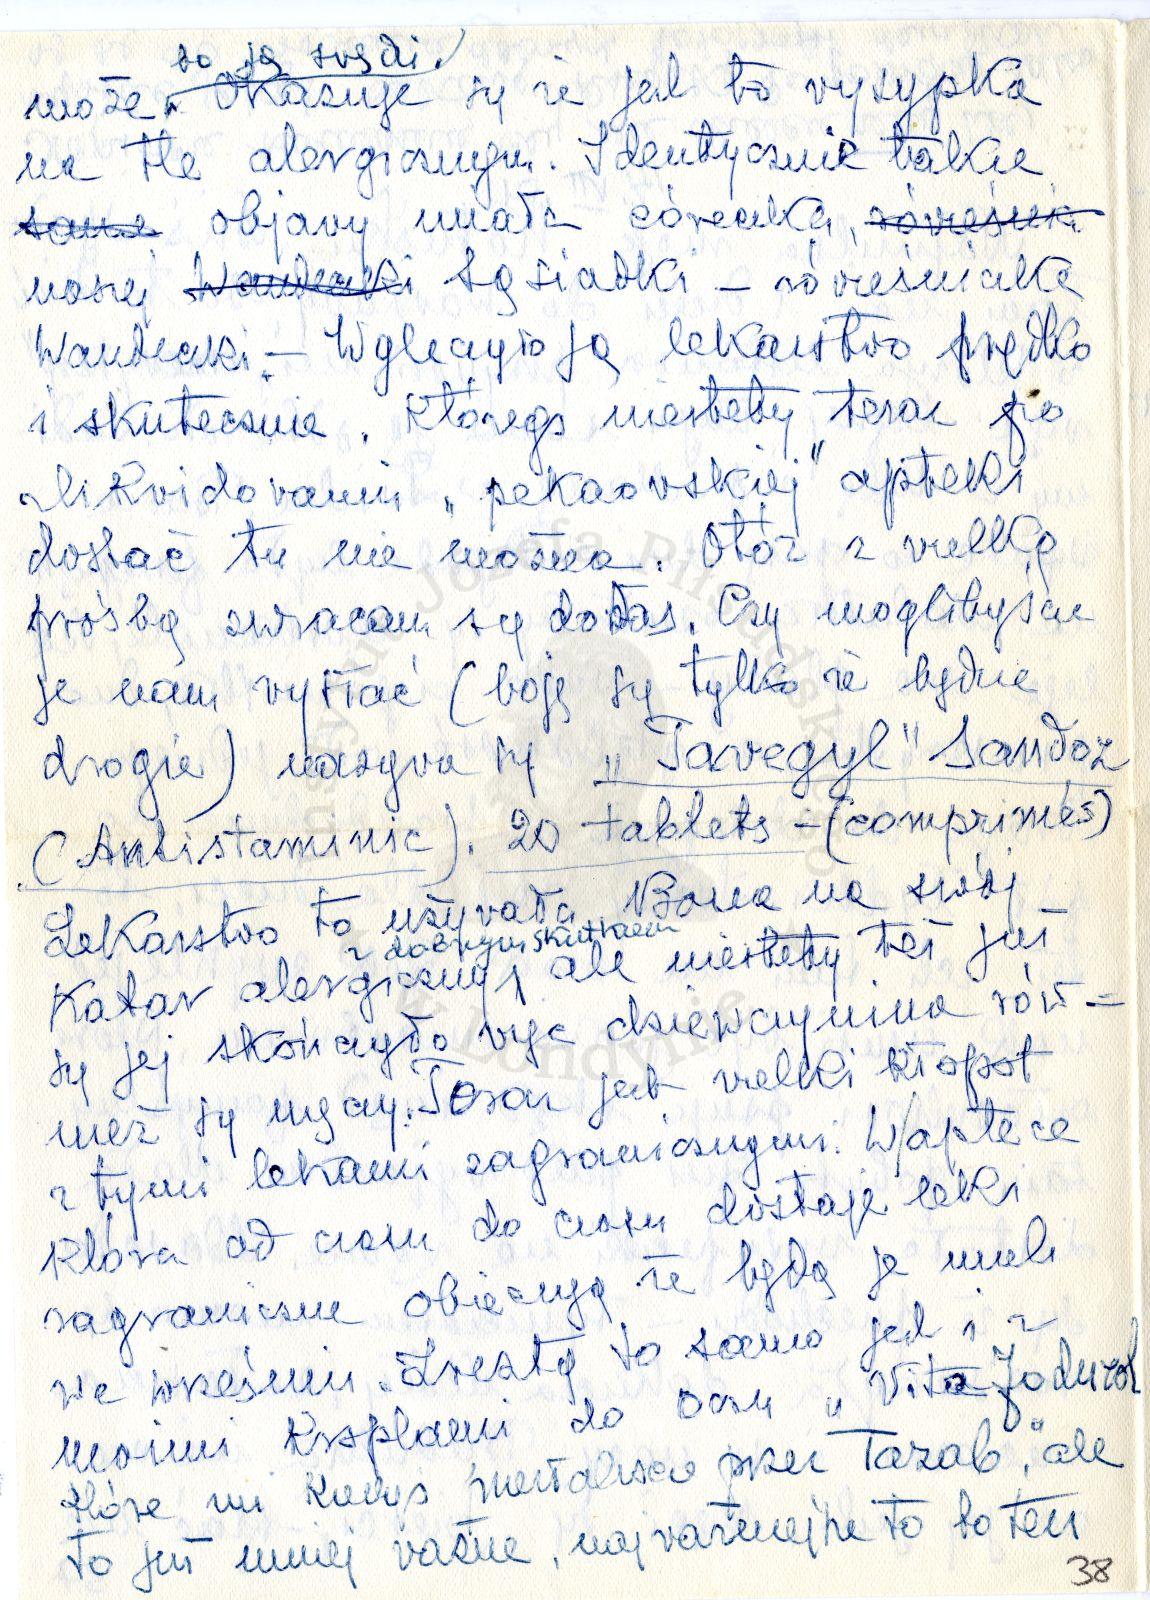 bo ją swędzi.
może. Okazuje się że jest to wysypka
na tle alergicznym. Identycznie takie
same objawy miała córeczka, rówieśnica
naszej Wandeczki sąsiadki – rówieśniczka
Wandeczki. – Wyleczyło ją lekarstwo prędko
i skutecznie. Którego niestety teraz po
zlikwidowaniu „pekaowskiej" apteki
dostać tu nie można. Otóż z wielką
prośbą zwracam się do Was. Czy moglibyście
je nam wysłać (boję się tylko że będzie
drogie) nazywa się „Tavegyl" Sandoz
(Antistaminic). 20 tablets – (comprimés)
Lekarstwo to używała Bona na swój
z dobrym skutkiem
katar alergiczny, ale niestety też już
się jej skończyło więc dziewczynina rów=
nież się męczy. Teraz jest wielki kłopot
z tymi lekami zagranicznymi. W aptece
która od czasu do czasu dostaje leki
zagraniczne obiecują że będą je mieli
we wrześniu. Zresztą to samo jest i z
moimi kroplami do oczu „Vita Jodurol
które mi kiedyś przez Tazab," ale
to już mniej ważne, najważniejsze to to ten
38
Instytut Józefa Piłsudskiego
w Londynie